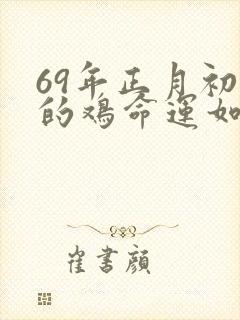 69年正月初
的鸡命运如
崔書顔